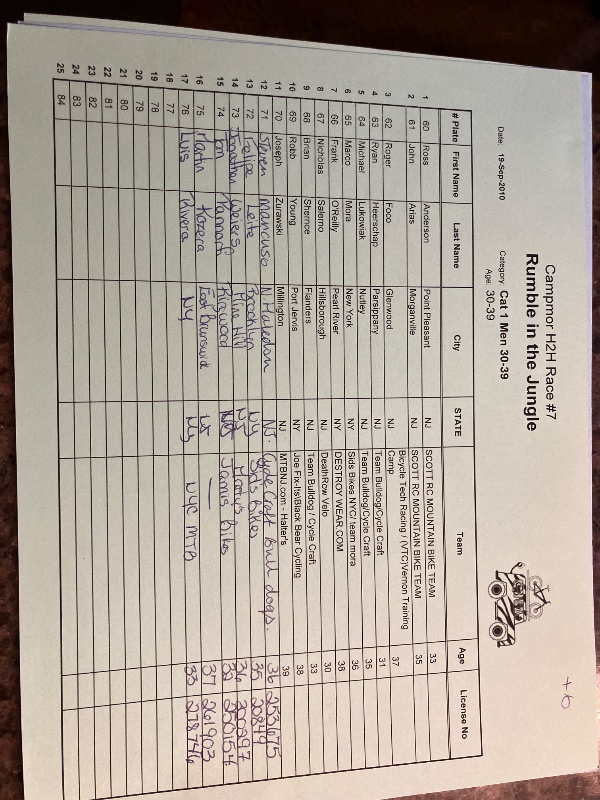 +6
Campmor H2H Race #7
Rumble in the Jungle
Date: 19-Sep-2010 Category: Cat 1 Men 30-39
Age: 30-39
# Plate First Name Last Name City STATE Team Age License No
1 60 Ross Anderson Point Pleasant NJ SCOTT RC MOUNTAIN BIKE TEAM 33
2 61 John Arias Morganville NJ SCOTT RC MOUNTAIN BIKE TEAM 35
Bicycle Tech Racing / (VTC)Vernon Training
3 62 Roger Foco Glenwood NJ Camp 37
4 63 Ryan Heerschap Parsippany NJ Team Bulldog/Cycle Craft 31
5 64 Michael Lukowiak Nutley NJ Team Bulldog/Cycle Craft 35
6 65 Marco Mora New York NY Sids Bikes NYC/ team mora 36
7 66 Frank O'Reilly Pearl River NY DESTROY WEAR.COM 38
8 67 Nicholas Salerno Hillsborough NJ DeathRow Velo 30
9 68 Brian Shernce Flanders NJ Team Bulldog / Cycle Craft 33
10 69 Robb Young Port Jervis NY Joe Fix-Its\Black Bear Cycling 38
11 70 Joseph Zurawski Millington NJ MTBNJ.com - Halter's 39
12 71 Steven Mancuso N. Haledon NJ Cycle Craft Bull dogs. 36 253675
13 72 Felipe Leite Brooklyn NY Sids Bikes 35 20849
14 73 Jonathan Mine Hill NJ Marty's 36 300297
15 74 Tom Ringwood NJ Jamis Bikes 32 250154
16 75 Martin Kozera East Brunswick NJ — 37 261903
17 76 Luis Rivera NY NY NYC MTB 33 278746
18 77
19 78
20 79
21 80
22 81
23 82
24 83
25 84